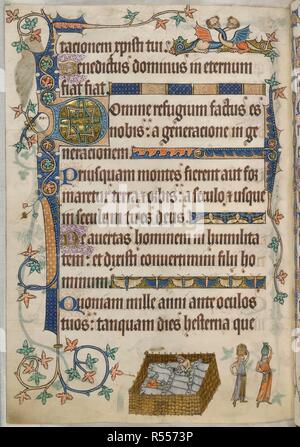 tacionem xpisti tui.
Benedictus dominus in eternum
fiat fiat.
Domine refugium factus es
nobis: a generacione in ge
neracionem
Priusquam montes fierent aut for
maretur terra & orbis: a seculo & usque
in seculum tu es deus.
Ne avertas hominem in humilita
tem: et dixisti convertimini filii ho
minum.
Quoniam mille anni ante oculos
tuos: tanquam dies hesterna que
alamy